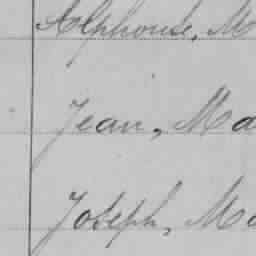 Alphonse, M
Jean, Ma
Joseph, Ma